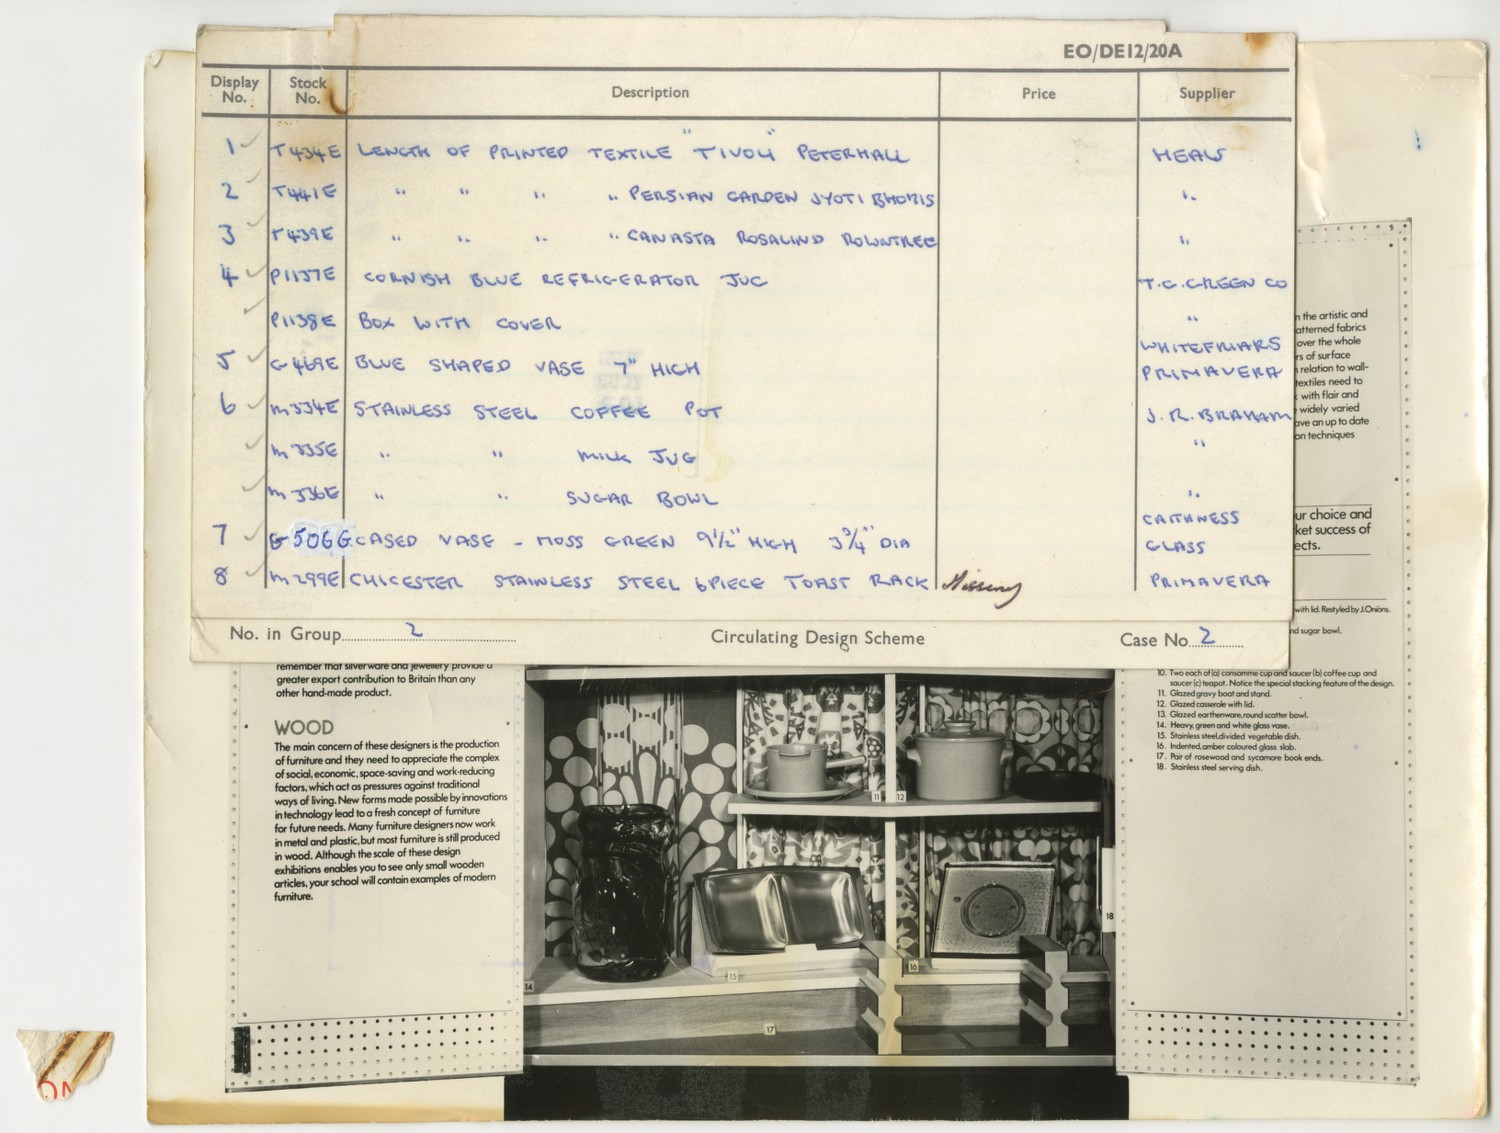 EO/DE12/20A
Display No. Stock No. Description Price Supplier
1 T434E LENGTH OF PRINTED TEXTILE "TIVOLI" PETERHALL HEALS
2 T441E " " " " PERSIAN GARDEN JYOTI BHOMIS "
3 T439E " " " " CANASTA ROSALIND ROWNTREE "
4 P1137E CORNISH BLUE REFRIGERATOR JUG T.G. GREEN CO
P1138E BOX WITH COVER "
5 G469E BLUE SHAPED VASE 7" HIGH WHITEFRIARS PRIMAVERA
6 M334E STAINLESS STEEL COFFEE POT J.R. BRAHAM
M335E " " MILK JUG "
M336E " " SUGAR BOWL "
7 G506G CASED VASE - MOSS GREEN 9½" HIGH 3¾" DIA CAITHNESS GLASS
8 M299E CHICESTER STAINLESS STEEL 6 PIECE TOAST RACK Missing PRIMAVERA
No. in Group 2 Circulating Design Scheme Case No 2
remember that silverware and jewellery provide a
greater export contribution to Britain than any
other hand-made product.
WOOD
The main concern of these designers is the production
of furniture and they need to appreciate the complex
of social, economic, space-saving and work-reducing
factors, which act as pressures against traditional
ways of living. New forms made possible by innovations
in technology lead to a fresh concept of furniture
for future needs. Many furniture designers now work
in metal and plastic, but most furniture is still produced
in wood. Although the scale of these design
exhibitions enables you to see only small wooden
articles, your school will contain examples of modern
furniture.
11 12
15 16
14
17
18
the artistic and
atterned fabrics
over the whole
rs of surface
relation to wall-
textiles need to
with flair and
widely varied
ave an up to date
on techniques
ur choice and
ket success of
ects.
with lid. Restyled by J.Onions.
nd sugar bowl.
10. Two each of (a) consomme cup and saucer (b) coffee cup and
saucer (c) teapot. Notice the special stacking feature of the design.
11. Glazed gravy boat and stand.
12. Glazed casserole with lid.
13. Glazed earthenware, round scatter bowl.
14. Heavy, green and white glass vase.
15. Stainless steel, divided vegetable dish.
16. Indented, amber coloured glass slab.
17. Pair of rosewood and sycamore book ends.
18. Stainless steel serving dish.